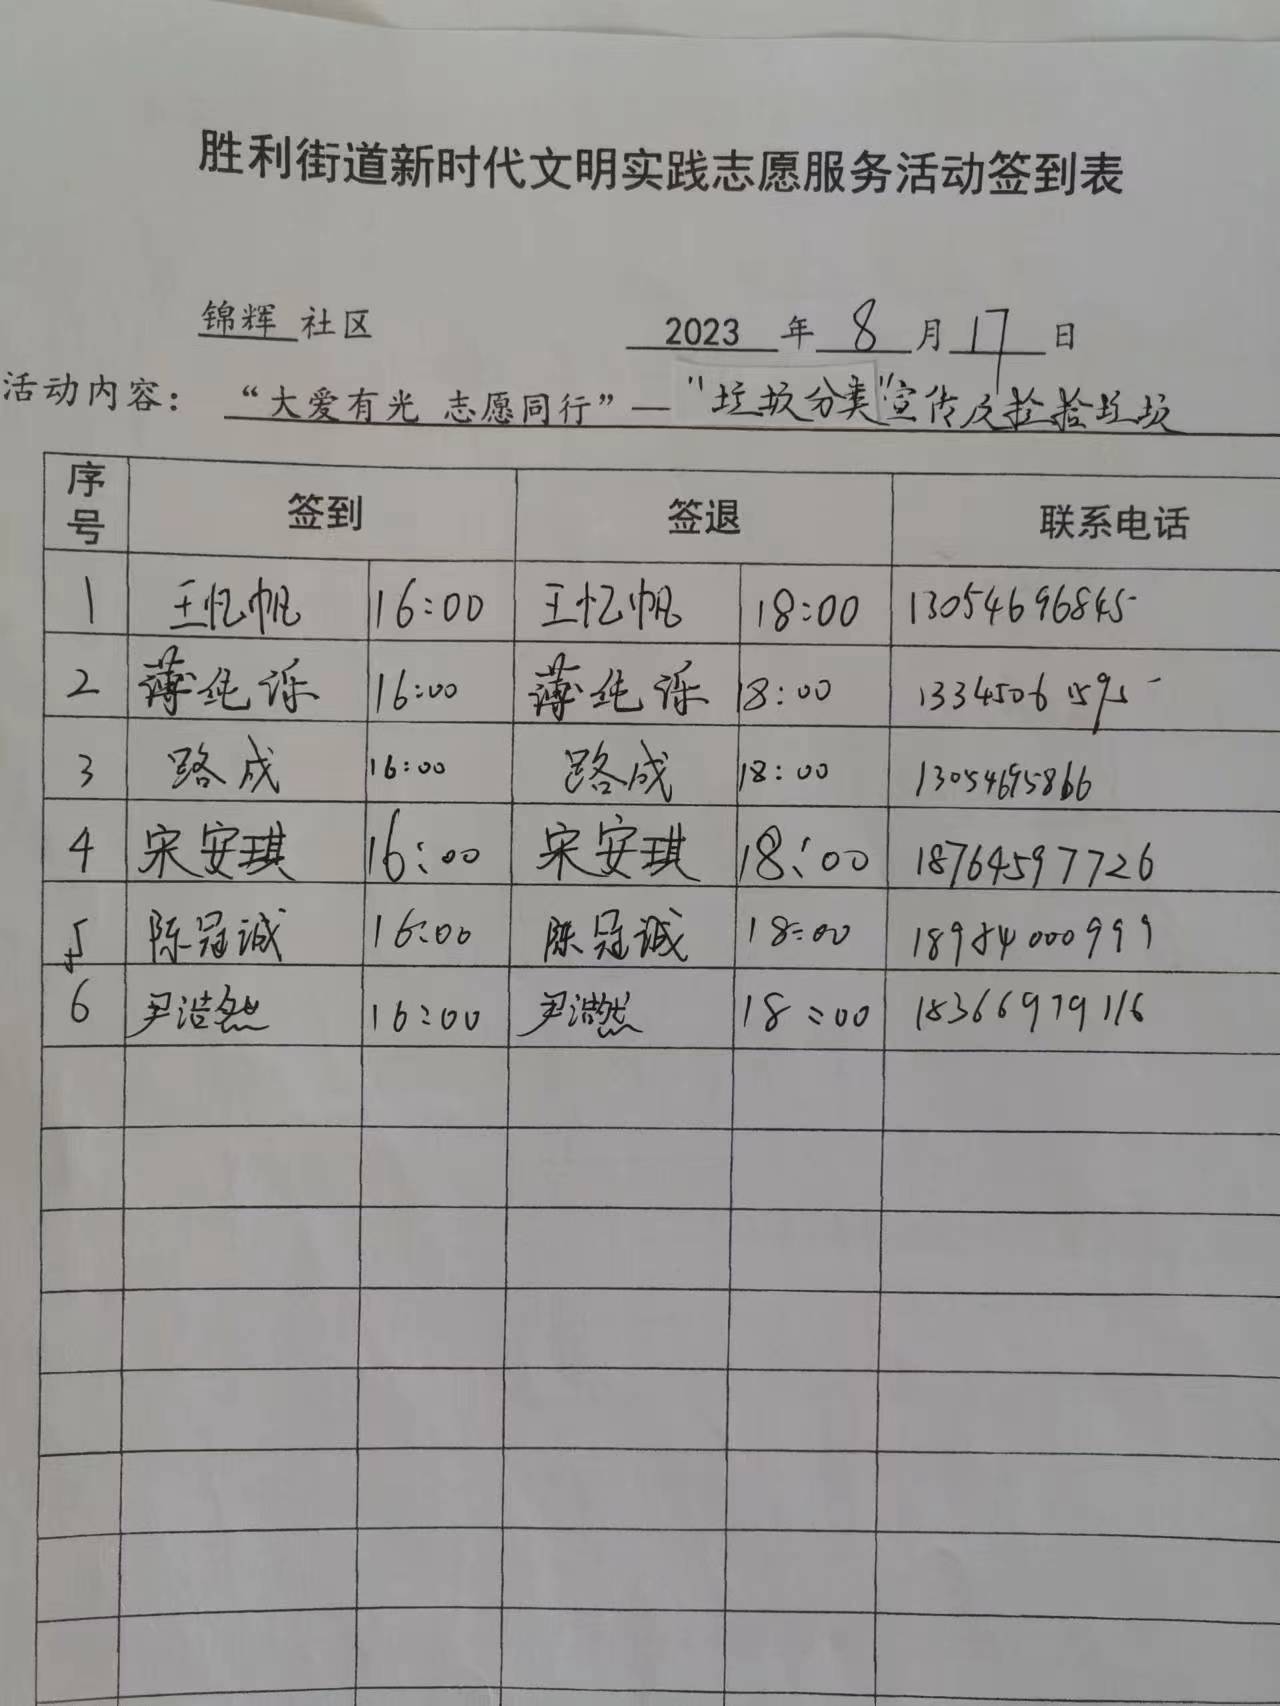 胜利街道新时代文明实践志愿服务活动签到表
锦辉 社区 2023 年 8 月 17 日
活动内容： “大爱有光 志愿同行”— “垃圾分类”宣传及捡拾垃圾
序号 签到 签退 联系电话
1 王忆帆 16:00 王忆帆 18:00 13054696845
2 薄纯泺 16:00 薄纯泺 18:00 13345061595
3 路成 16:00 路成 18:00 13054695866
4 宋安琪 16:00 宋安琪 18:00 18764597726
5 陈冠诚 16:00 陈冠诚 18:00 18954000999
6 尹浩然 16:00 尹浩然 18:00 18366979116